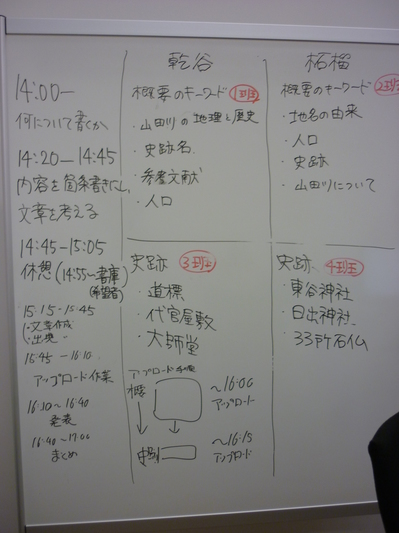 14:00—
何について書くか
14:20— 14:45
内容を箇条書きにし、
文章を考える
14:45-15:05
休憩(14:55〜書庫
(希望者)
15:15-15:45
・文章作成
・出典
15:45 -16:10
アップロード作業
16:10〜16:40
発表
16:40〜17:00
まとめ
乾谷
概要のキーワード 1班
・山田川の地理と歴史
・史跡名
・参考文献
・人口
柘榴
概要のキーワード 2班
・地名の由来
・人口
・史跡
・山田川について
史跡 3班
・道標
・代官屋敷
・大師堂
アップロード手順
概要
〜16:00
アップロード
史跡
〜16:15
アップロード
史跡 4班
・東谷神社
・日出神社
・33所石仏